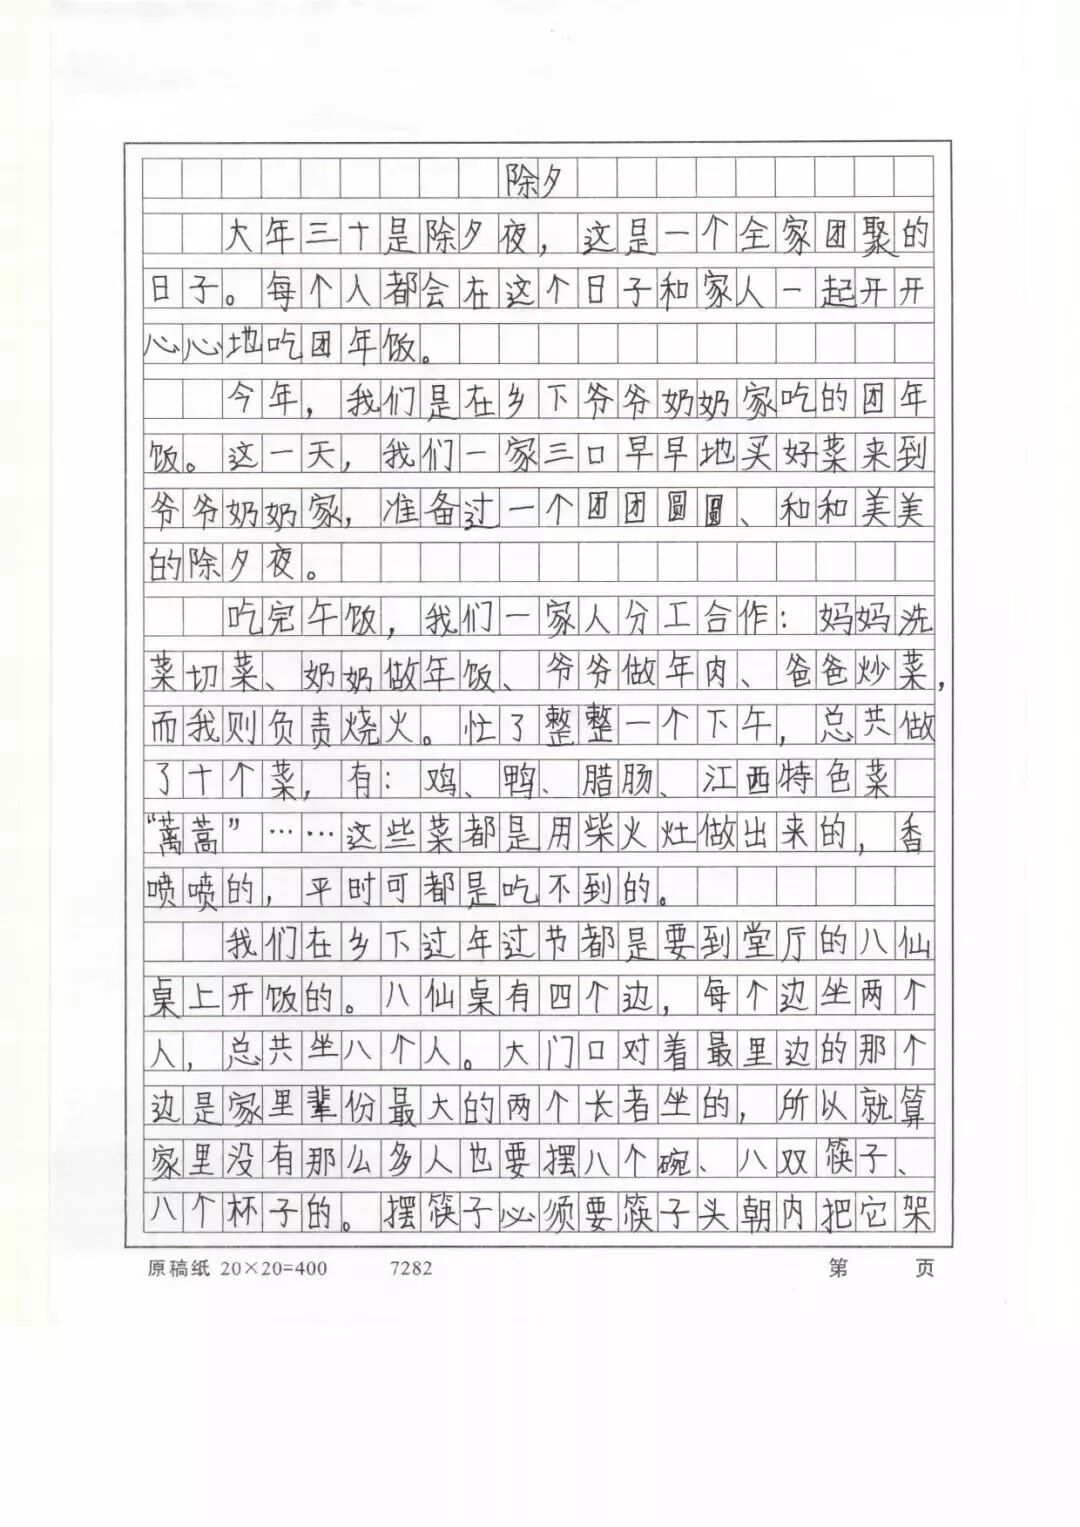 除夕
大年三十是除夕夜，这是一个全家团聚的
日子。每个人都会在这个日子和家人一起开开
心心地吃团年饭。
今年，我们是在乡下爷爷奶奶家吃的团年
饭。这一天，我们一家三口早早地买好菜来到
爷爷奶奶家，准备过一个团团圆圆、和和美美
的除夕夜。
吃完午饭，我们一家人分工合作：妈妈洗
菜切菜、奶奶做年饭、爷爷做年肉、爸爸炒菜，
而我则负责烧火。忙了整整一个下午，总共做
了十个菜，有：鸡、鸭、腊肠、江西特色菜
“蓠蒿”……这些菜都是用柴火灶做出来的，香
喷喷的，平时可都是吃不到的。
我们在乡下过年过节都是要到堂厅的八仙
桌上开饭的。八仙桌有四个边，每个边坐两个
人，总共坐八个人。大门口对着最里边的那个
边是家里辈份最大的两个长者坐的，所以就算
家里没有那么多人也要摆八个碗、八双筷子、
八个杯子的。摆筷子必须要筷子头朝内把它架
原稿纸 20×20=400 7282 第 页